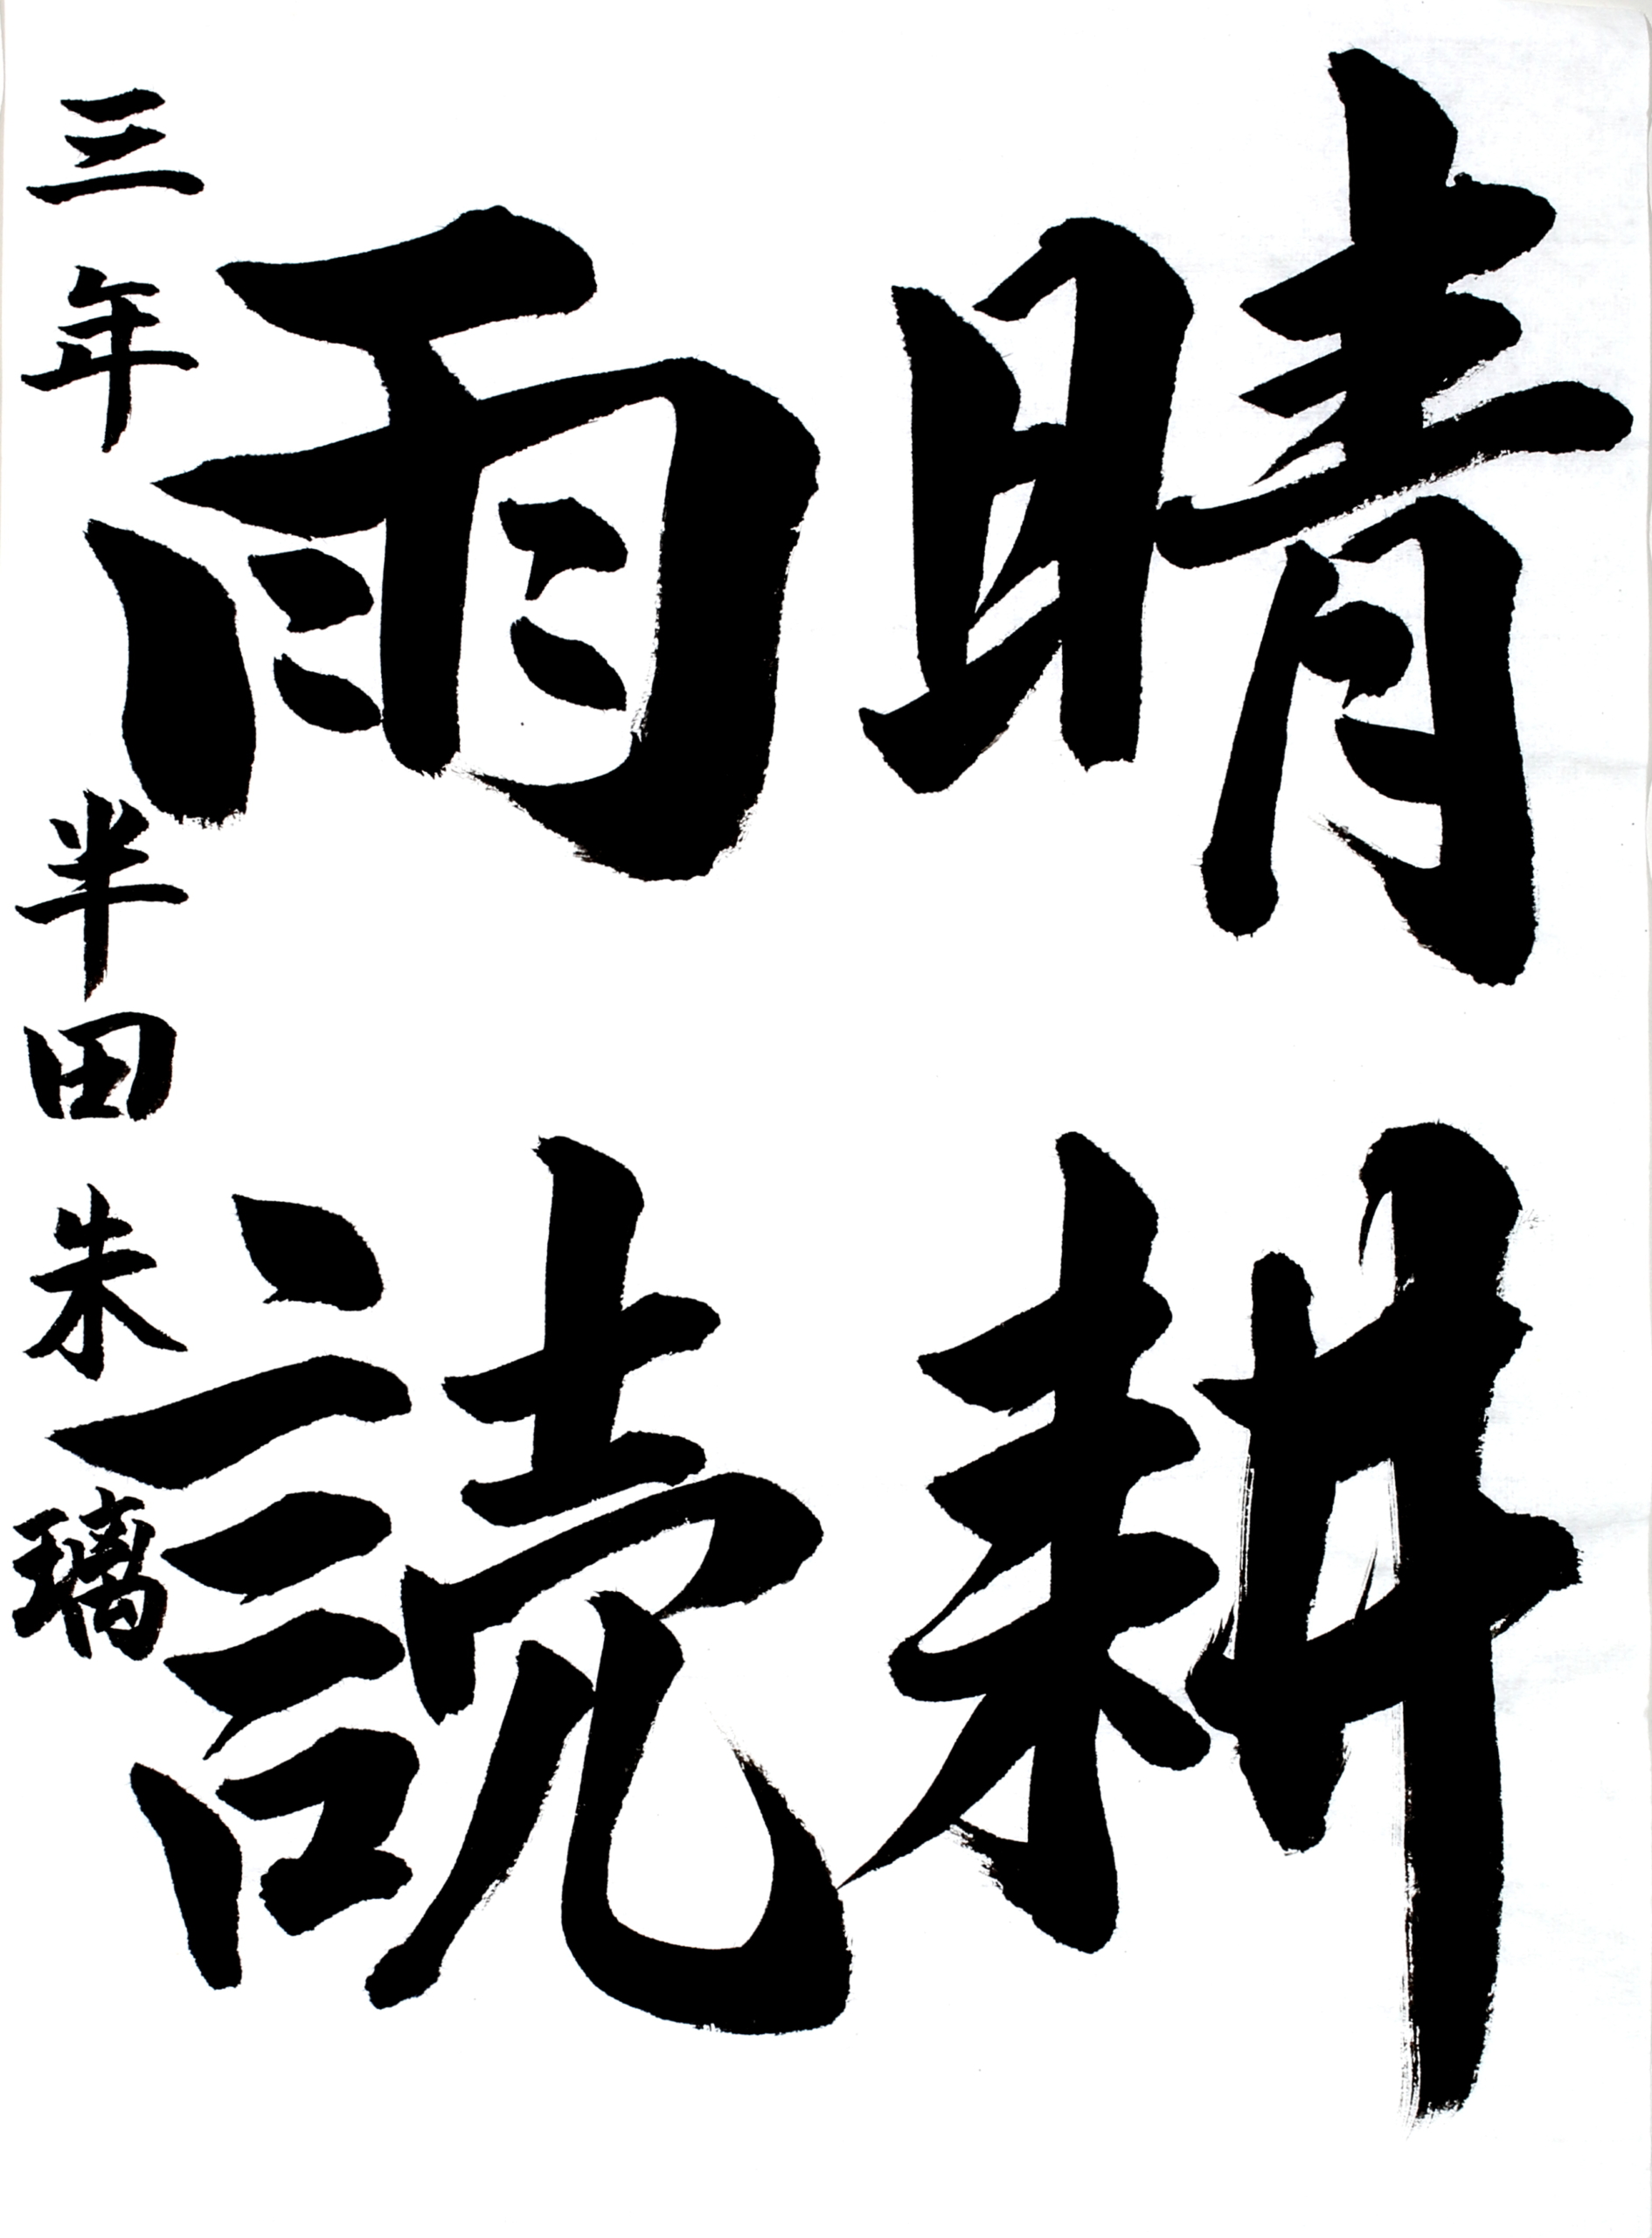 晴耕
雨読
三年 半田朱璃